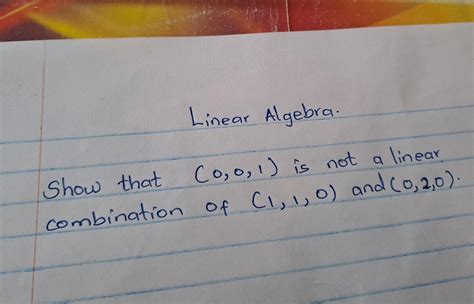 Linear Algebra.
Show that (0,0,1) is not a linear
combination of (1,1,0) and (0,2,0).